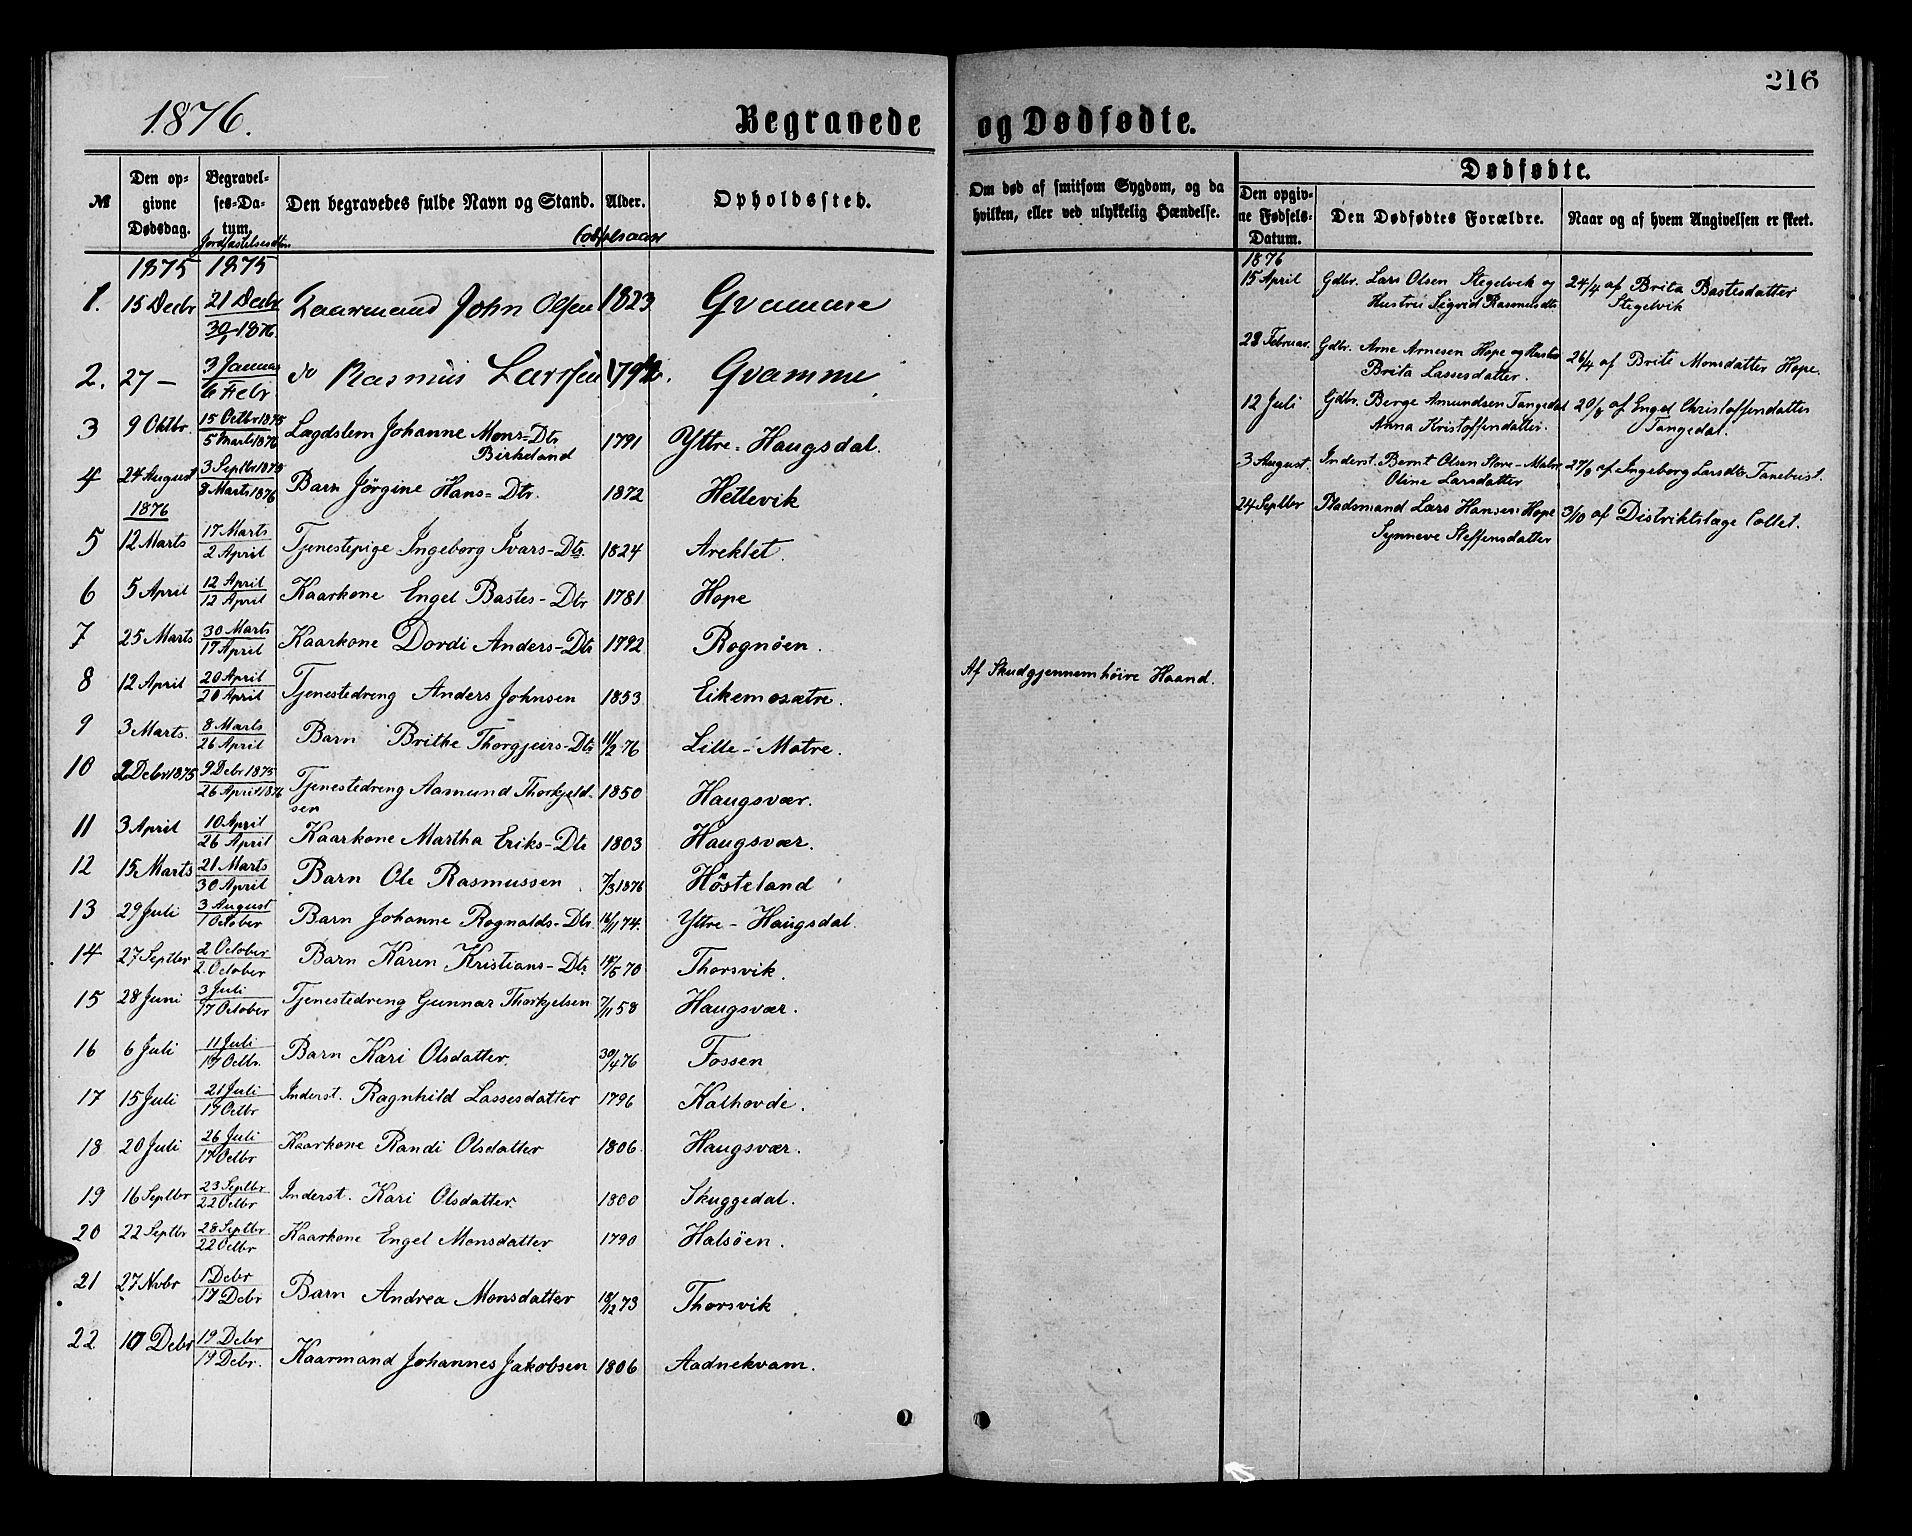 216
1876.
Begravede og Dødfødte.
№
Den opgivne Dødsdag.
Begravelses-Datum.
Jordfæstelsesdtm
Den begravedes fulde Navn og Stand.
Alder.
Fødselsaar
Opholdssted.
Om død af smitsom Sygdom, og da hvilken, eller ved ulykkelig Hændelse.
Dødfødte.
Den opgivne Fødsels-Datum.
Den Dødfødtes Forældre.
Naar og af hvem Angivelsen er skeet.
1875 1875
1. 15 Decbr 21 Decbr / 30 1876. Kaarmand John Olsen 1823 Gvamme
2. 27 — 3 Januar / 6 Febr do Rasmus Larssen Gvamme
3 9 Oktbr. 15 Octbr 1875 / 5 Marts 1876 Lægdslem Johanne Mons-Dtr Birkeland 1791 Yttre-Haugsdal.
4 24 August 3 Septbr 1875 / 8 Marts 1876 Barn Jörgine Hans-Dtr. 1872 Hettevik
1876
5 12 Marts 17 Marts / 2 April Tjenestepige Ingeborg Ivars-Dtr. 1824 Areklet.
6 5 April 12 April / 12 April Kaarkone Engel Bastes-Dtr 1781 Hope
7 25 Marts 30 Marts / 17 April Kaarkone Dordi Anders-Dtr 1792 Rognöen.
8 12 April 20 April / 20 April Tjenestedreng Anders Johnsen 1853 Eikemosætre. Af Skudgjennem höire Haand.
9 3 Marts. 8 Marts / 26 April Barn Brithe Thorgjeirs-Dtr 11/2 76 Lille-Matre.
10 2 Debr 1875 9 Debr 1875 / 26 April 1876 Tjenestedreng Aamund Thorkjeldsen 1850 Haugsvær.
11 3 April 10 April / 26 April Kaarkone Martha Eriks-Dtr 1803 Haugsvær.
12 15 Marts 21 Marts / 30 April Barn Ole Rasmussen 7/3 1876 Hösteland
13 29 Juli 3 August / 1 October Barn Johanne Rognalds-Dtr. 16/11 74. Yttre-Haugsdal.
14 27 Septbr 2 October / 2 October Barn Karen Kristians-Dtr. 14/5 70 Thorsvik.
15 28 Juni 3 Juli / 17 October Tjenestedreng Gunnar Thorkjelsen 7/11 58 Haugsvær.
16 6 Juli 11 Juli / 17 Octbr. Barn Kari Olsdatter. 30/4 76 Fossen
17 15 Juli 21 Juli / 17 Octbr Inderst. Ragnhild Lassesdatter 1796 Kalhovde.
18 20 Juli 26 Juli / 17 Octbr Kaarkone Randi Olsdatter 1806. Haugsvær.
19 16 Septbr 23 Septbr / 22 Octbr Inderst. Kari Olsdatter. 1800 Skuggedal.
20 22 Septbr 28 Septbr / 22 Octbr Kaarkone Engel Monsdatter 1790 Halsöen.
21 27 Nvbr 1 Debr / 17 Debr Barn Andrea Monsdatter 18/12 73 Thorsvik
22 10 Debr 19 Debr / 19 Debr. Kaarmand Johannes Jakobsen 1806 Aadnekvam.
1876
15 April Gdbr. Lars Olsen Stegelvik og Hustru Sigrid Rasmusdtr 24/4 af Brita Bastesdatter Stegelvik
28 Februar. Gdbr. Arne Arnesen Hope og Hustru Brita Lassesdatter. 26/4 af Briti Monsdatter Hope.
12 Juli Gdbr. Berge Amundsen Tangedal Anna Kristoffersdatter. 20/8 af Engel Christoffersdatter Tangedal.
3 August. Inderst. Bernt Olsen Store-Matre Oline Larsdatter 27/8 af Ingeborg Larsdtr Tanebust.
24 Septbr Pladsmand Lars Hansen Hope Synneve Steffensdatter 3/10 af Distriktslæge Collet.